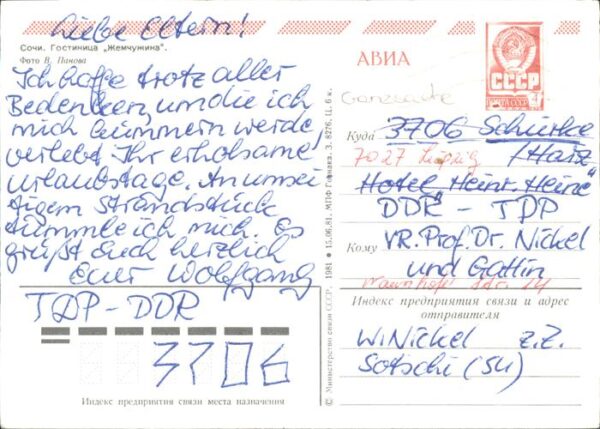 Liebe Eltern!
Сочи. Гостиница „Жемчужина".
Фото В. Панова
Ich hoffe trotz aller
Bedenken, um die ich
mich kümmern werde,
verlebt Ihr erholsame
Urlaubstage. An unsei
tigem Strandstück
tümmle ich mich. Es
grüßt Euch herzlich
Euer Wolfgang
TDP-DDR
3706
Индекс предприятия связи места назначения
© Министерство связи СССР, 1981 • 15.06.81. МПФ Гознака. З. 8276. Ц. 6 к.
АВИА
СССР
ПОЧТА СССР
Ganzsache
Куда 3706 Schierke
/Harz
7027 Leipzig
Hotel „Heinr. Heine"
DDR - ТДР
Кому VR. Prof. Dr. Nickel
und Gattin
24
Индекс предприятия связи и адрес
отправителя
W. Nickel z.Z.
Sotschi (SU)